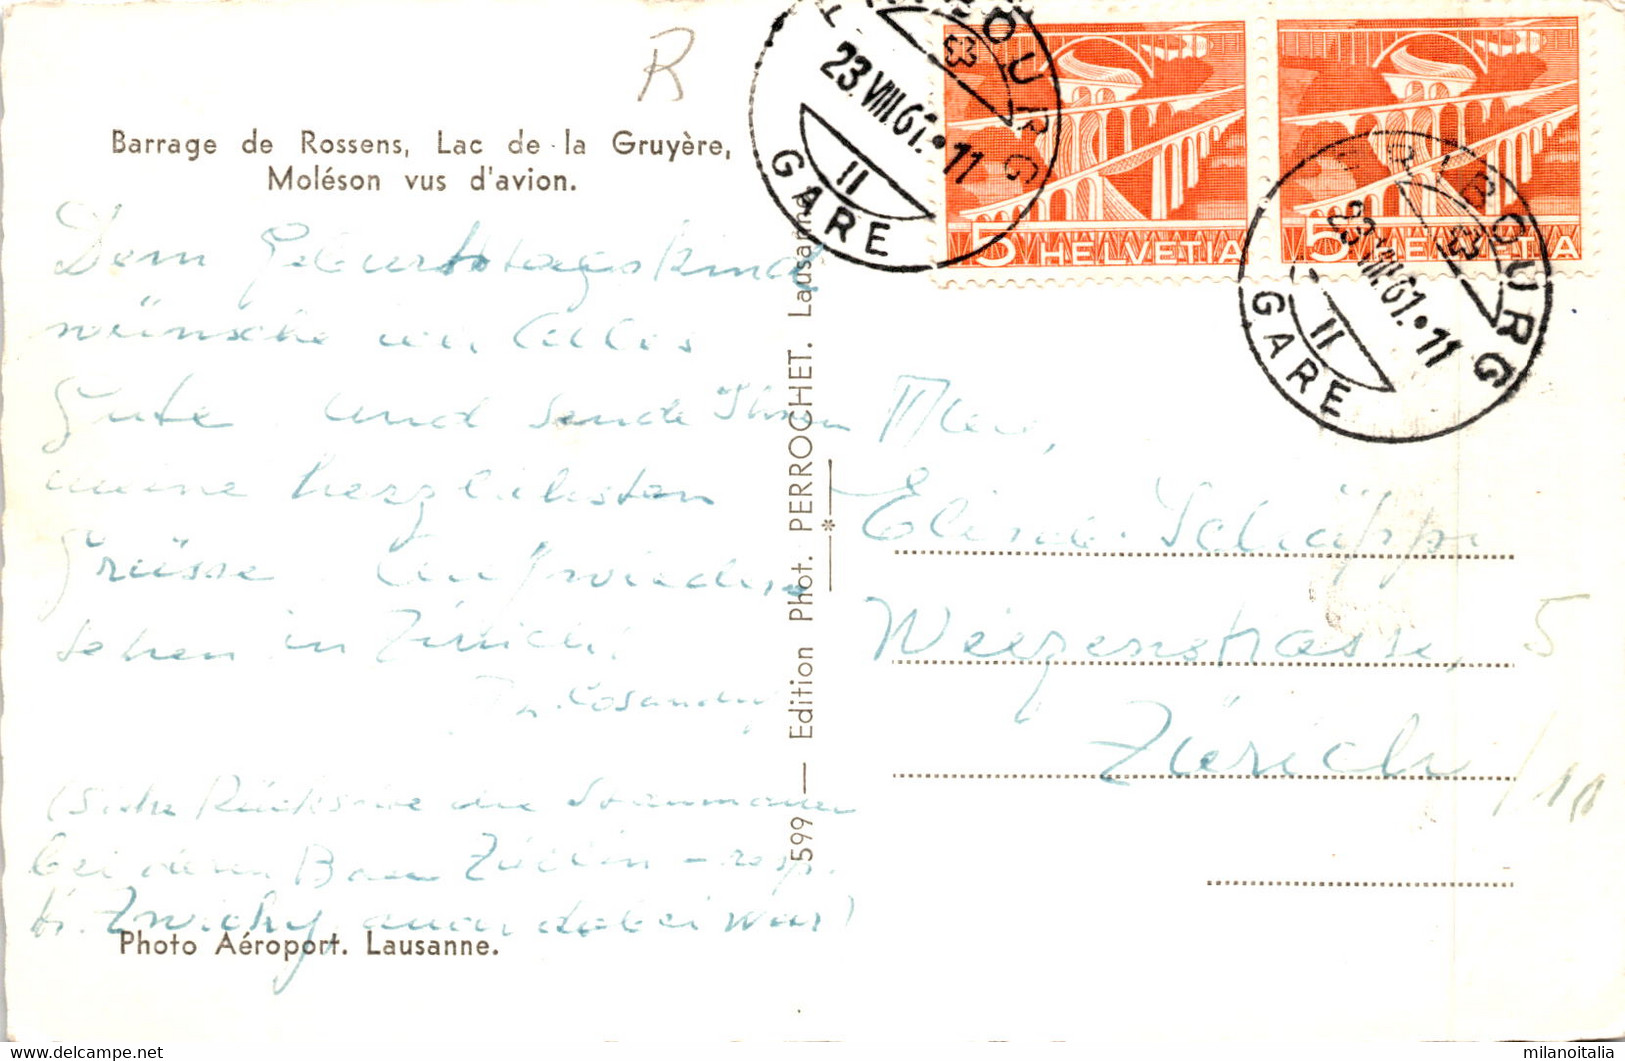 R
Barrage de Rossens, Lac de la Gruyère,
Moléson vus d'avion.
Dem Geburtstagskind
wünsche ich Alles
Gute und sende Ihnen
meine herzlichsten
Grüsse. Auf wieder
sehen in Zürich!
Cosandey
(Siehe Rückseite die Staumauer
bei deren Bau Züblin - resp.
H. Zwicky, auch dabei war)
Photo Aéroport. Lausanne.
599 — Edition Phot. PERROCHET. Lausanne
FRIBOURG
23.VIII.61.•11
II
GARE
5 HELVETIA
5 HELVETIA
FRIBOURG
23.VIII.61.•11
II
GARE
Elise Schäppi
Weizenstrasse, 5
Zürich / 10
milanoitalia